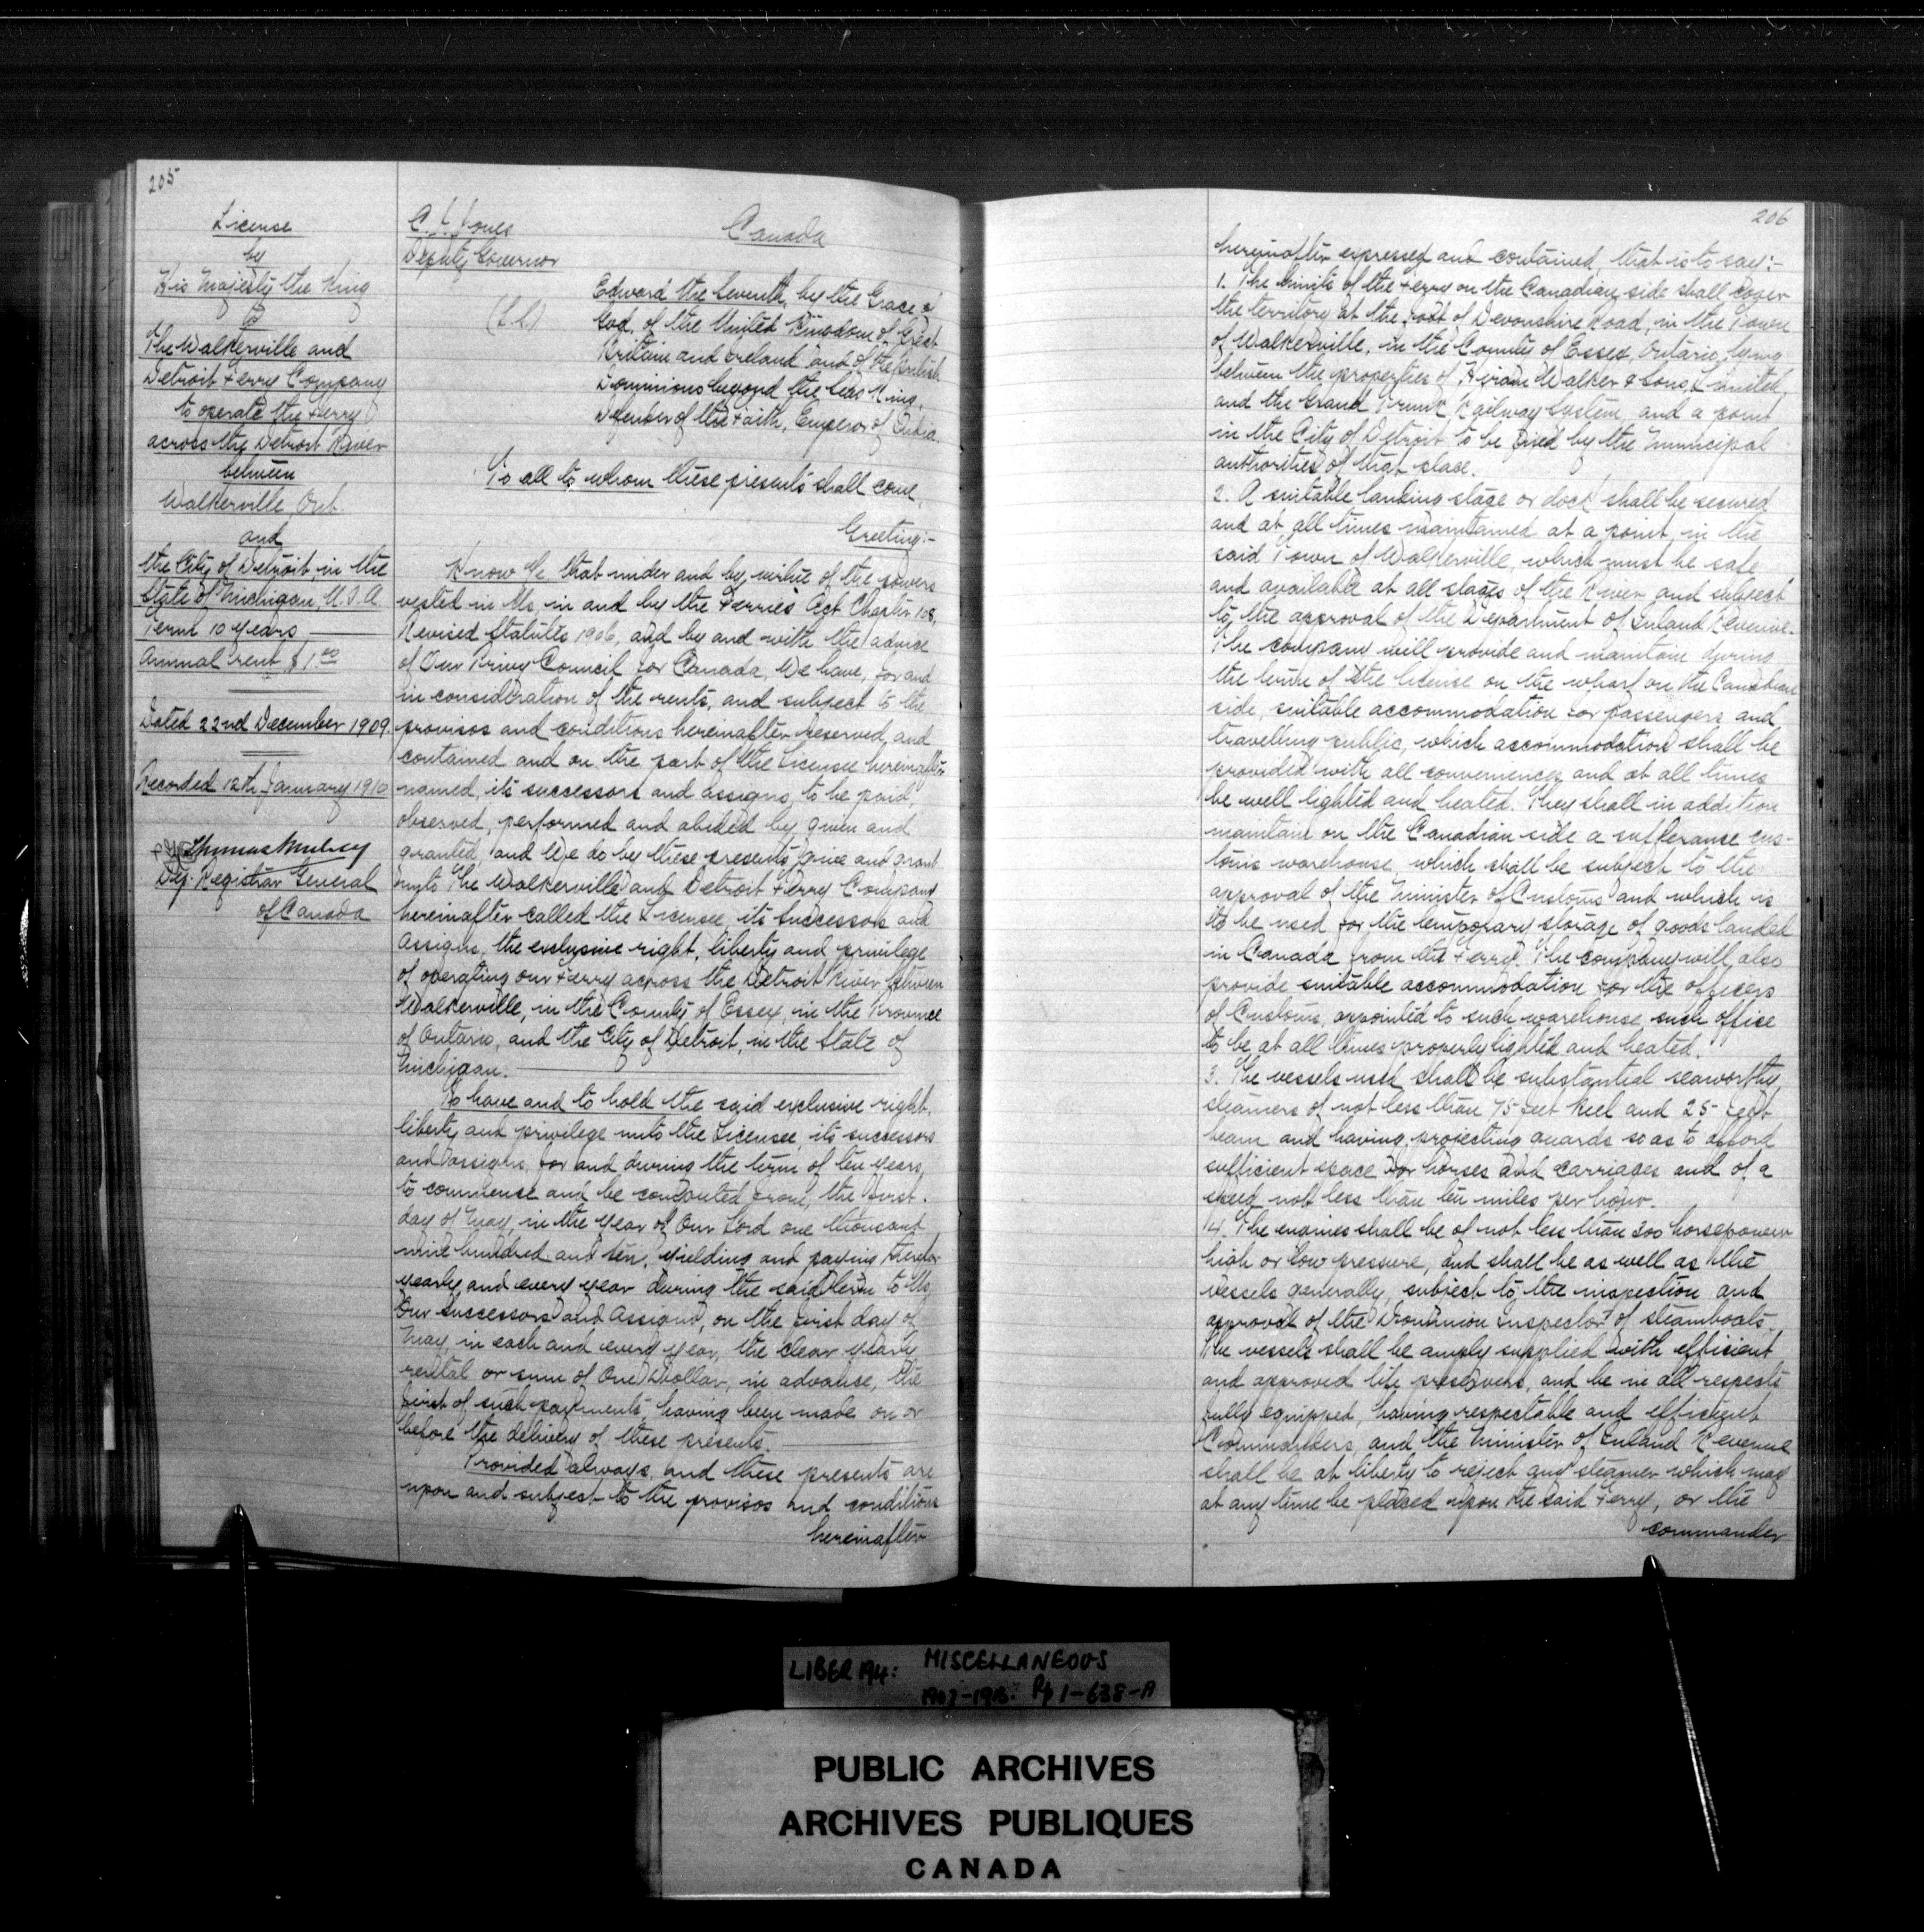 205
License
by
His Majesty the King
to
The Walkerville and
Detroit Ferry Company
to operate the Ferry
across the Detroit River
between
Walkerville Ont.
and
the City of Detroit, in the
State of Michigan, U.S.A.
Term 10 years
Annual rent $1.00
Dated 22nd December 1909.
Recorded 12th January 1910
Thomas Mulvey
Dep. Registrar General
of Canada
Canada
Deputy Governor
(L.S.)
Edward the Seventh, by the Grace of
God, of the United Kingdom of Great
Britain and Ireland and of the British
Dominions beyond the Seas King,
Defender of the Faith, Emperor of India.
To all to whom these presents shall come,
Greeting:-
Know Ye that under and by virtue of the powers
vested in Us, in and by the Ferries Act Chapter 108,
Revised Statutes 1906, and by and with the advice
of Our Privy Council for Canada, We have, for and
in consideration of the rents, and subject to the
provisos and conditions hereinafter reserved, and
contained and on the part of the Licensee hereinafter
named, its successors and assigns, to be paid,
observed, performed and abided by, given and
granted, and We do by these presents give and grant
unto The Walkerville and Detroit Ferry Company
hereinafter called the Licensee, its Successors and
Assigns, the exclusive right, liberty and privilege
of operating our Ferry across the Detroit River between
Walkerville, in the County of Essex, in the Province
of Ontario, and the City of Detroit, in the State of
Michigan.
To have and to hold the said exclusive right,
liberty and privilege unto the Licensee, its successors
and assigns, for and during the term of ten years,
to commence and be computed from, the first
day of May, in the year of Our Lord one thousand
nine hundred and ten, yielding and paying therefor
yearly and every year during the said term to Us,
Our Successors and Assigns, on the first day of
May, in each and every year, the clear yearly
rental or sum of One Dollar, in advance, the
first of such payments, having been made on or
before the delivery of these presents.
Provided always, and these presents are
upon and subject to the provisos and conditions
hereinafter
206
hereinafter expressed and contained, that is to say:-
1. The limits of the Ferry on the Canadian side shall cover
the territory at the foot of Devonshire Road, in the Town
of Walkerville, in the County of Essex, Ontario, lying
between the properties of Hiram Walker & Sons, Limited,
and the Grand Trunk Railway System, and a point
in the City of Detroit to be fixed by the Municipal
authorities of that place.
2. A suitable landing stage or dock shall be secured
and at all times maintained at a point, in the
said Town of Walkerville, which must be safe
and available at all stages of the River and subject
to the approval of the Department of Inland Revenue.
The company will provide and maintain during
the term of the license on the wharf on the Canadian
side, suitable accommodation for passengers and
travelling public, which accommodation shall be
provided with all conveniences and at all times
be well lighted and heated. They shall in addition
maintain on the Canadian side a sufferance cus-
toms warehouse, which shall be subject to the
approval of the Minister of Customs and which is
to be used for the temporary storage of goods landed
in Canada from the Ferry. The company will also
provide suitable accommodation for the officers
of Customs, appointed to such warehouse, such office
to be at all times properly lighted and heated.
3. The vessels used shall be substantial seaworthy
steamers of not less than 75 feet keel and 25 feet
beam and having projecting guards so as to afford
sufficient space for horses and carriages and of a
speed not less than ten miles per hour.
4. The engines shall be of not less than 300 horsepower
high or low pressure, and shall be as well as the
vessels generally, subject to the inspection and
approval of the Dominion Inspector of steamboats.
The vessels shall be amply supplied with efficient
and approved life preservers, and be in all respects
fully equipped, having respectable and efficient
Commanders, and the Minister of Inland Revenue
shall be at liberty to reject any steamer which may
at any time be placed upon the said Ferry, or the
commander
LIBER 194: MISCELLANEOUS
1907-1913. Pp 1-638-A
PUBLIC ARCHIVES
ARCHIVES PUBLIQUES
CANADA